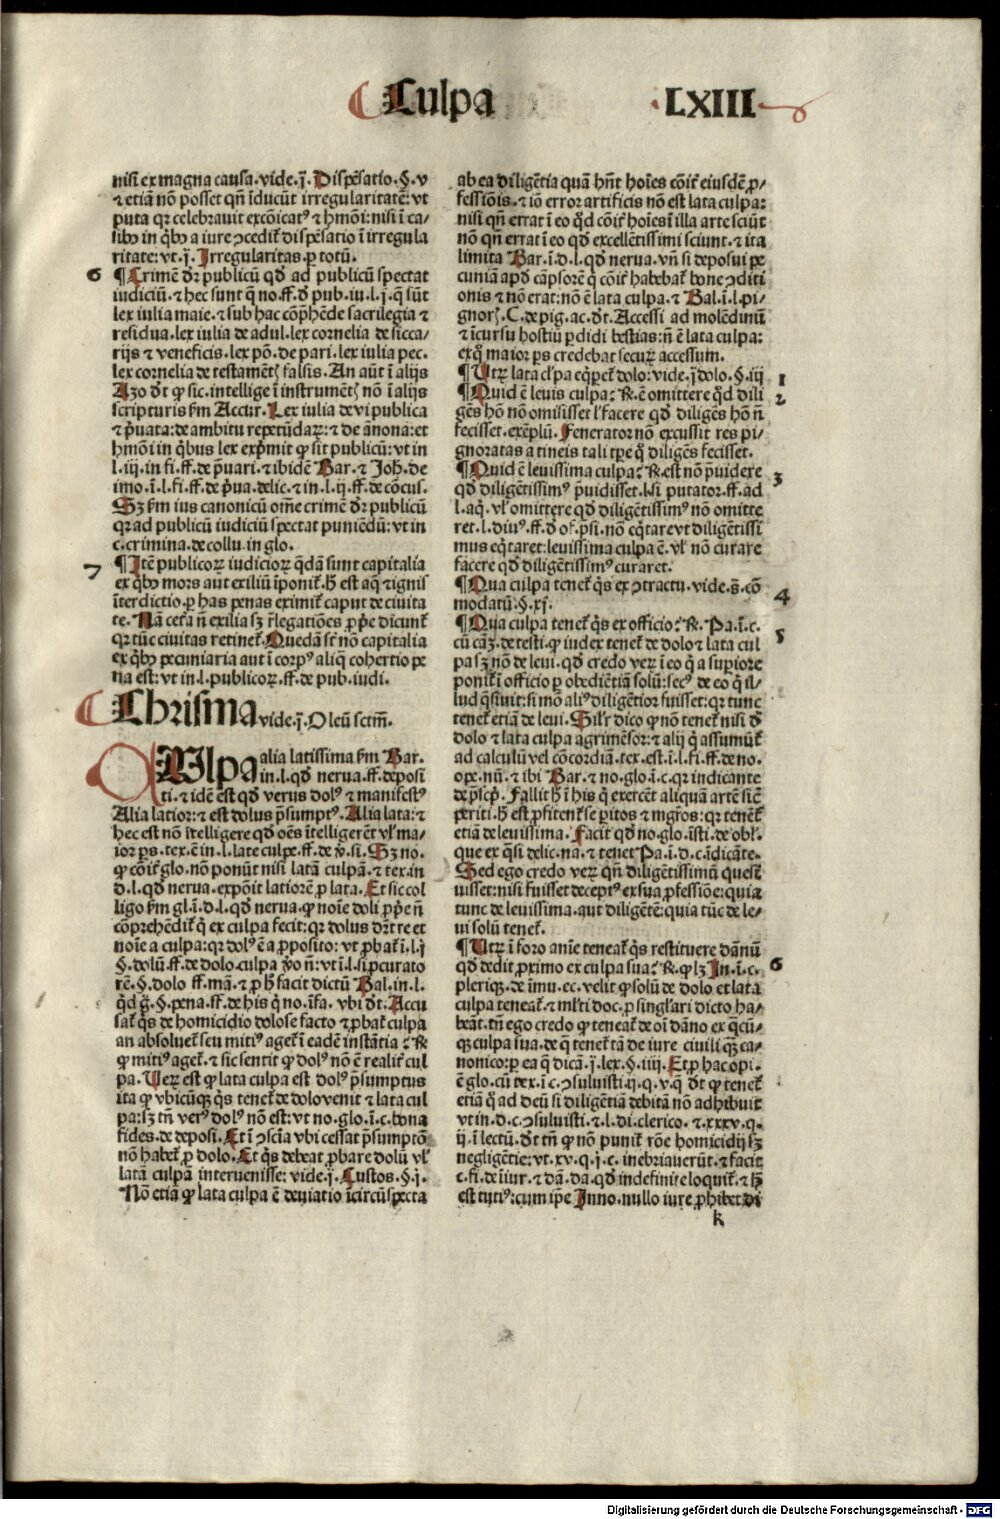 Culpa
LXIII
nisi ex magna causa. vide. j̄. Dispēsatio. §. v
⁊ etiā nō posset qñ īducūt irregularitatē: vt
puta qꝛ celebrauit excōicatꝰ ⁊ hmōi: nisi ī ca-
sibꝰ in qͥbꝰ a iure ꝯcedit̄ dispēsatio ī irregula
ritate: vt. j̄. Irregularitas. ꝑ totū.
6
¶ Crimē dꝛ publicū qd̄ ad publicū spectat
iudiciū. ⁊ hec sunt q̄ no. ff. d̄ pub. iu. l. j. q̄ sūt
lex iulia maie. ⁊ sub hac cōp̄hēde sacrilegia ⁊
residua. lex iulia de adul. lex cornelia de sicca-
rijs ⁊ veneficis. lex pō. de pari. lex iulia pec.
lex cornelia de testamēt̄ falsis. An aūt ī alijs
Azo dt̄ ꝙ sic. intellige ī instrumēt̄ nō ī alijs
scripturis ẜm Accur. Lex iulia de vi publica
⁊ p̄uata: de ambitu repetūdaꝝ: ⁊ de ānona: et
hmōi in qͥbus lex exp̄mit ꝙ sit publicū: vt in
l. iij. in fi. ff. de p̄uari. ⁊ ibidē Bar. ⁊ Joh. de
imo. ī. l. fi. ff. de p̄ua. delic. ⁊ in. l. ij. ff. de cōcus.
Sꝫ ẜm ius canonicū om̄e crimē dꝛ publicū
qꝛ ad publicū iudiciū spectat puniēdū: vt in
c. crimina. de collu. in glo.
7
¶ Itē publicoꝝ iudicioꝝ qdā sunt capitalia
ex qͥbꝰ mors aut exiliū īponit̄. h̄ est aq̄ ⁊ ignis
īterdictio. ꝑ has penas eximit̄ caput de ciuita
te. Nā cet̄a ñ exilia sꝫ r̄legatiōes ꝓp̄e dicunt̄
qꝛ tūc ciuitas retinet̄. Quedā st̄ nō capitalia
ex qͥbꝰ pecuniaria aut ī corpꝰ aliq̄ cohertio pe
na est: vt in. l. publicoꝝ. ff. de pub. iudi.
Chrisma vide. j̄. Oleū sctm̄.
Culpa alia latissima ẜm Bar.
in. l. qd̄ nerua. ff. deposi
ti. ⁊ idē est qd̄ verus dolꝰ ⁊ manifestꝰ
Alia latior: ⁊ est dolus p̄sumptꝰ. Alia lata: ⁊
hec est nō ītelligere qd̄ oēs ītelligerēt vl̓ ma-
ior ps. tex. ē in. l. late culpe. ff. de ꝟ. si. Sꝫ no.
ꝙ cōit̓ glo. nō ponūt nisi latā culpā. ⁊ tex. in
d. l. qd̄ nerua. expōit latiorē ꝑ lata. Et sic col
ligo ẜm gl. ī. d. l. qd̄ nerua. ꝙ noīe doli ꝓp̄e ñ
cōprehēdit̄ q̄ ex culpa fecit: qꝛ dolus dr̄t re et
noīe a culpa: qꝛ dolꝰ ē a ꝓposito: vt ꝓbat̄ ī. l. j̄
§. dolū. ff. de dolo. culpa ꝟo ñ: vt ī. l. si ꝓcurato
rē. §. dolo ff. mā. ⁊ ꝑ h̄ facit dictū Bal. in. l.
qd̄ g̊. §. pena. ff. de his q̄ no. īfa. vbi dt̄. Accu
sat̄ qs̄ de homicidio dolose facto ⁊ ꝓbat̄ culpa
an absoluet̄ seu mitiꝰ aget̄ ī eadē instātia: ℞
ꝙ mitiꝰ aget̄. ⁊ sic sentit ꝙ dolꝰ nō ē realit̓ cul
pa. Veꝝ est ꝙ lata culpa est dolꝰ p̄sumptus
ita ꝙ vbicūqꝫ qs̄ tenet̄ de dolo venit ⁊ lata cul
pa: sꝫ tñ verꝰ dolꝰ nō est: vt no. glo. ī. c. bona
fides. de deposi. Et ī ꝯscīa vbi cessat p̄sumptō
nō habet̄ ꝓ dolo. Et qs̄ debeat ꝓbare dolū vl̓
latā culpā interuenisse: vide. j̄. Custos. §. j.
Nō etiā ꝙ lata culpa ē deuiatio īcircūspecta
ab ea diligētia quā hñt hoīes cōit̓ eiusdē ꝓ-
fessiōis. ⁊ iō error artificis nō est lata culpa:
nisi qñ errat ī eo qd̄ cōit̓ hoīes ī illa arte sciūt
nō qñ errat ī eo qd̄ excellētissimi sciunt. ⁊ ita
limita Bar. ī. d. l. qd̄ nerua. vñ si deposui pe
cuniā apd̄ cāpsorē q̄ cōit̓ habebat̄ bone ꝯditi
onis ⁊ nō erat: nō ē lata culpa. ⁊ Bal. ī. l. pi-
gnoꝝ. C. de pig. ac. dt̄. Accessi ad molēdinū
⁊ īcursu hostiū ꝑdidi bestias: ñ ē lata culpa:
exq̄ maior ps credebat securꝝ accessum.
1
¶ Utꝝ lata cl̓pa eqͥpet̄ dolo: vide. j̄. dolo. §. iij
2
¶ Quid ē leuis culpa: ℞. ē omittere qd̄ dili
gēs hō nō omisisset l̓ facere qd̄ diligēs hō ñ
fecisset. exēplū. Fenerator nō excussit res pi-
gnoratas a tineis tali tꝑe q̄ diligēs fecisset.
3
¶ Quid ē leuissima culpa: ℞. est nō p̄uidere
qd̄ diligētissimꝰ p̄uidisset. l. si putator. ff. ad
l. aq̄. vl̓ omittere qd̄ diligētissimꝰ nō omitte
ret. l. diuꝰ. ff. d̄ of. p̄si. nō eq̄taret vt diligētissi
mus eq̄taret: leuissima culpa ē. vl̓ nō curare
facere qd̄ diligētissimꝰ curaret.
4
¶ Qua culpa tenet̄ qs̄ ex ꝯtractu. vide. s̄. cō
modatū. §. xj.
5
¶ Qua culpa tenet̄ qs̄ ex officio: ℞. Pa. ī. c.
cū cāꝫ. de testi. ꝙ iudex tenet̄ de dolo ⁊ lata cul
pa sꝫ nō de leui. qd̄ credo veꝝ ī eo q̄ a supiore
ponit̄ ī officio ꝑ obediētiā solū: secꝰ de eo q̄ il-
lud q̄siuit: si mō aliꝰ diligētior fuisset: qꝛ tunc
tenet̄ etiā de leui. Sil̓r dico ꝙ nō tenet̄ nisi d̄
dolo ⁊ lata culpa agrimēsor: ⁊ alij q̄ assumūt̄
ad calculū vel cōcordiā. tex. est. ī. l. fi. ff. de no.
oꝑe. nū. ⁊ ibi Bar. ⁊ no. glo. ī. c. qꝛ indicante
de p̄scp̄. Fallit h̄ ī his q̄ exercēt aliquā artē sicē
periti: h̄ est ꝓfitent̄ se ꝑitos ⁊ mgr̄os: qꝛ tenēt̄
etiā de leuissima. Facit qd̄ no. glo. īsti. de obl̓.
que ex q̄si delic. na. ⁊ tenet Pa. ī. d. c. īdicāte.
Sed ego credo veꝝ qñ diligētissimū quesi
uisset: nisi fuisset deceptꝰ ex sua ꝓfessiōe: quia
tunc de leuissima. aut diligētē: quia tūc de le-
ui solū tenet̄.
6
¶ Utꝝ ī foro anīe teneat̄ qs̄ restituere dānū
qd̄ dedit ꝓximo ex culpa sua: ℞. ꝙ lꝫ In. ī. c.
pleriqꝫ. de īmu. ec. velit ꝙ solū de dolo et lata
culpa teneat̄. ⁊ ml̓ti doc. ꝑ singl̓ari dicto ha-
beāt. tñ ego credo ꝙ teneat̄ de oī dāno ex qͥcū-
qꝫ culpa sua. de q̄ tenet̄ tā de iure ciuili qꝫ ca-
nonico: ꝑ ea q̄ dicā. j̄. lex. §. iiij. Et ꝑ hac opi.
ē glo. cū tex. ī c. ꝯsuluisti. ij. q. v. q̄ dt̄ ꝙ tenet̄
etiā q̄ ad deū si diligētiā debitā nō adhibuit
vt in. d. c. ꝯsuluisti. ⁊ l. di. clerico. ⁊ xxxv. q.
ij. ī. lectū. dt̄ tñ ꝙ nō punit̄ rōe homicidij sꝫ
negligētie: vt. xv. q. j. c. inebriauerūt. ⁊ facit
c. fi. de īiur. ⁊ dā. da. qd̄ indefinite loquit̄. ⁊ h̄
est tutiꝰ: cum ip̄e Inno. nullo iure ꝓhibet di
k
Digitalisierung gefördert durch die Deutsche Forschungsgemeinschaft - DFG